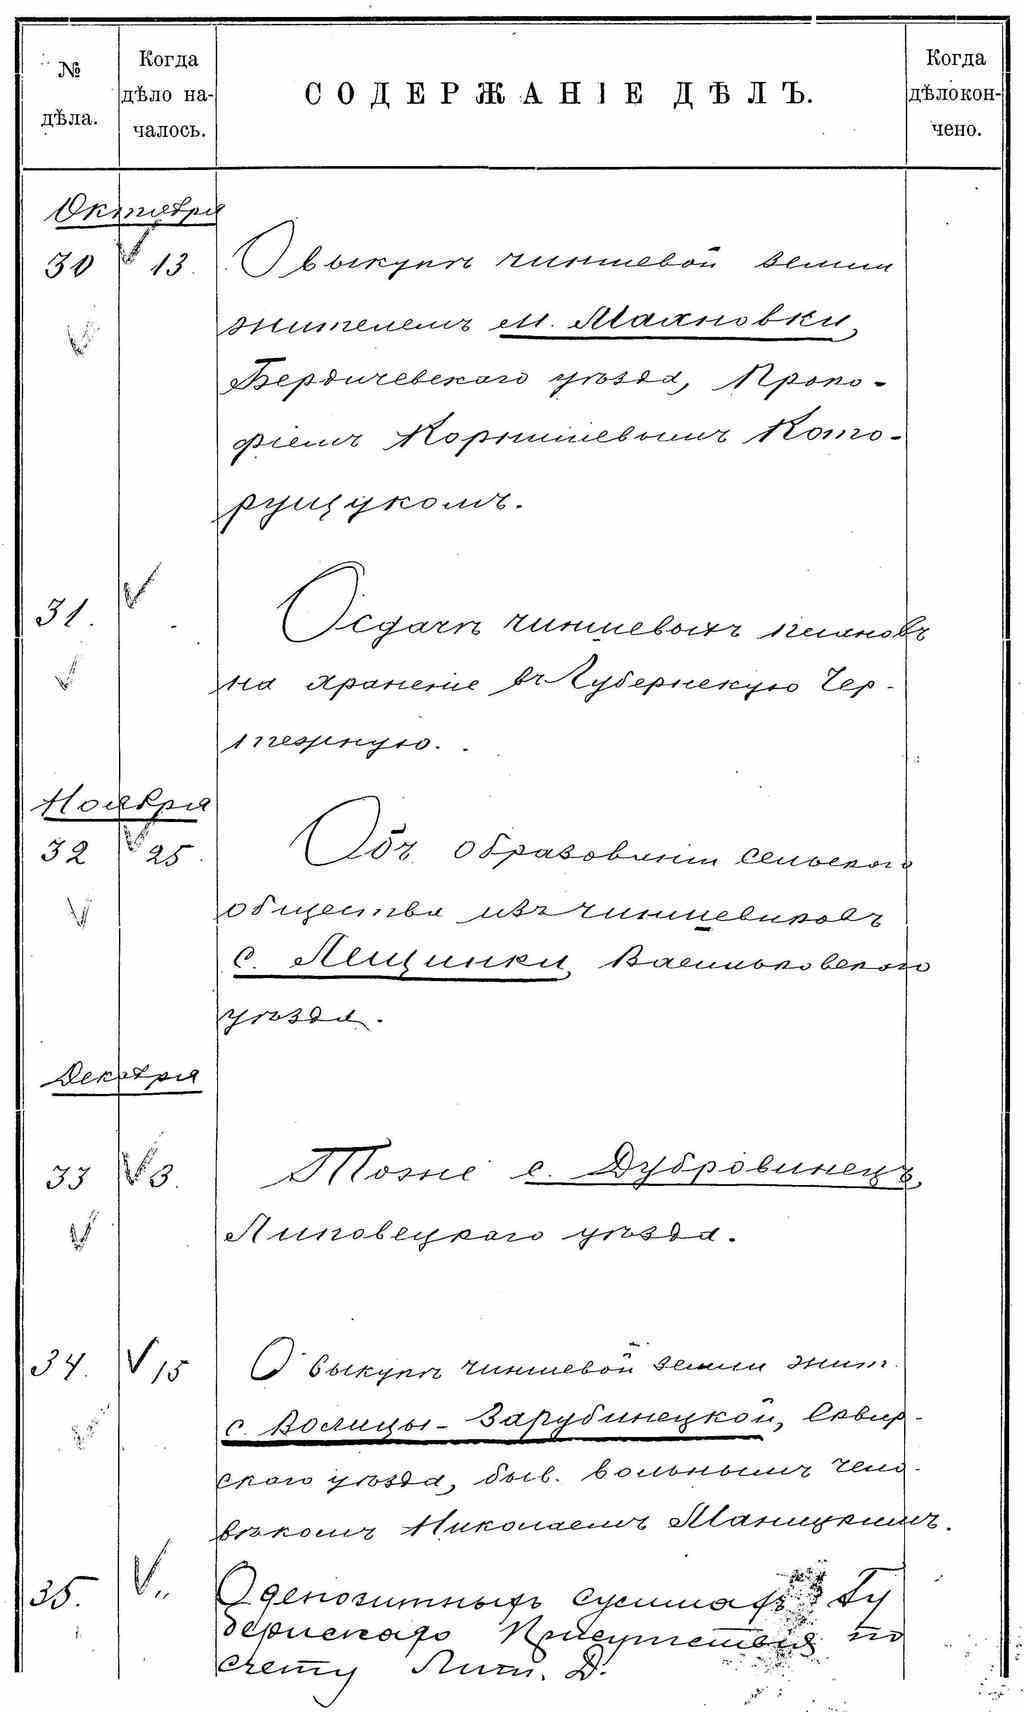 № дѣла.
Когда дѣло на-
чалось.
СОДЕРЖАНІЕ ДѢЛЪ.
Когда дѣло кон-
чено.
Октября
30 13. О выкупѣ чиншевой земли
жителемъ м. Махновки,
Бердичевскаго уѣзда, Проко-
фіемъ Корнѣевымъ Кото-
рущукомъ.
31. О сдачѣ чиншевыхъ плановъ
на храненіе въ Губернскую Чер-
тежную.
Ноября
32 25. Объ образованіи сельскаго
общества изъ чиншевиковъ
с. Лещинки, Васильковскаго
уѣзда.
Декабря
33 3. Тоже с. Дубровинецъ,
Липовецкаго уѣзда.
34. 15 О выкупѣ чиншевой земли жит.
с. Волицы-Зарубинецкой, Сквир-
скаго уѣзда, быв. вольнымъ чело-
вѣкомъ Николаемъ Маницкимъ.
35. „ О депозитныхъ суммахъ Гу
бернскаго Присутствія по
счету Лит. Д.